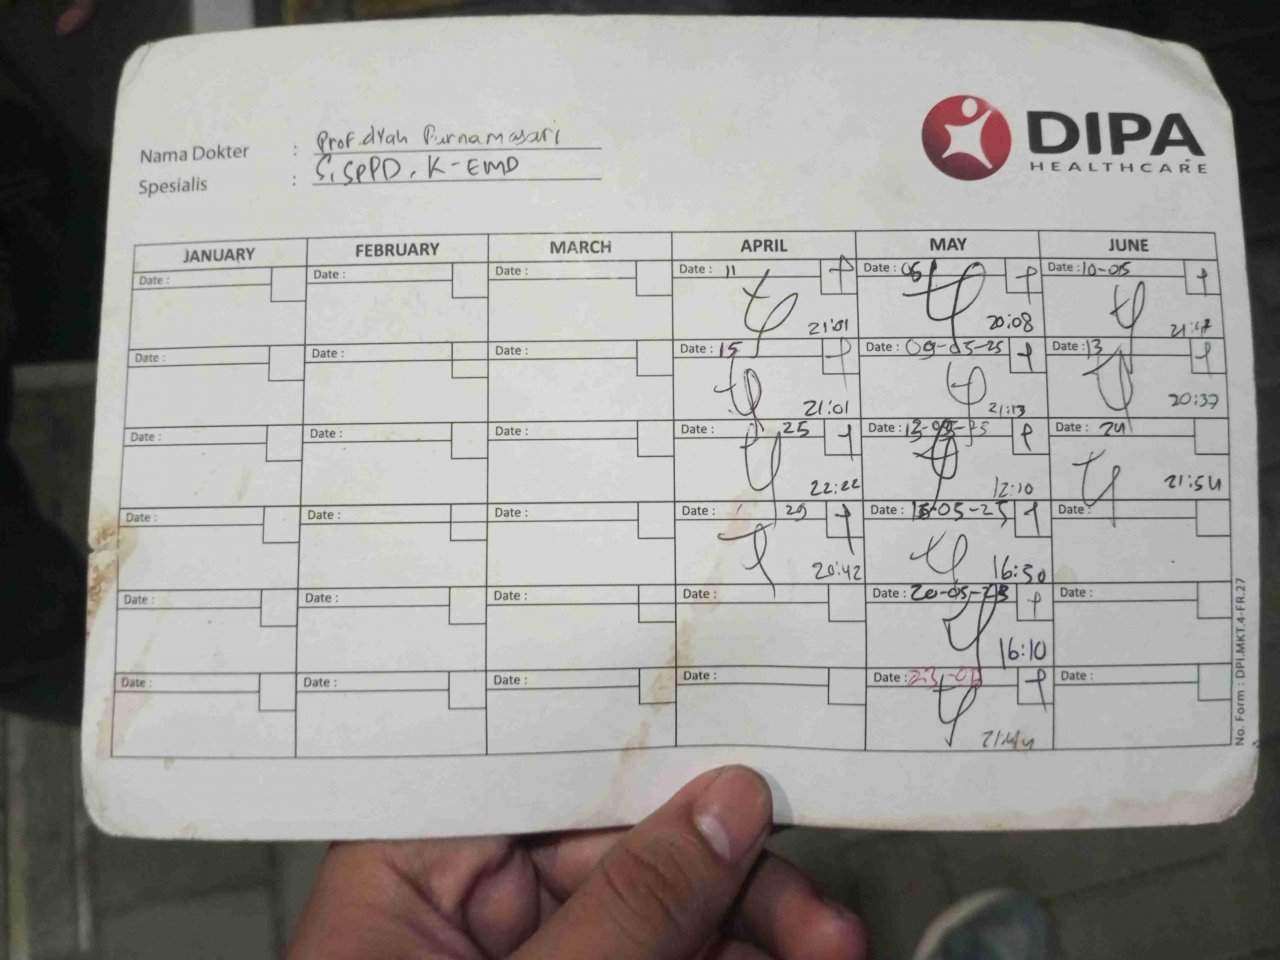 DIPA
HEALTHCARE
Nama Dokter : Prof. dyah Purnamasari
Spesialis : S, SpPD. K-EMD
JANUARY FEBRUARY MARCH APRIL MAY JUNE
Date : Date : Date : Date : 11 Date : 06 Date : 10-05
21:01 20:08 21:17
Date : Date : Date : Date : 15 Date : 09-05-25 Date : 13
21:01 21:13 20:37
Date : Date : Date : Date : 25 Date : 13-05-25 Date : 24
22:22 12:10 21:54
Date : Date : Date : Date : 29 Date : 15-05-25 Date :
20:42 16:30
Date : Date : Date : Date : Date : 20-05-25 Date :
16:10
Date : Date : Date : Date : Date : 23-05 Date :
21:44
No. Form : DPI.MKT.4-FR.27